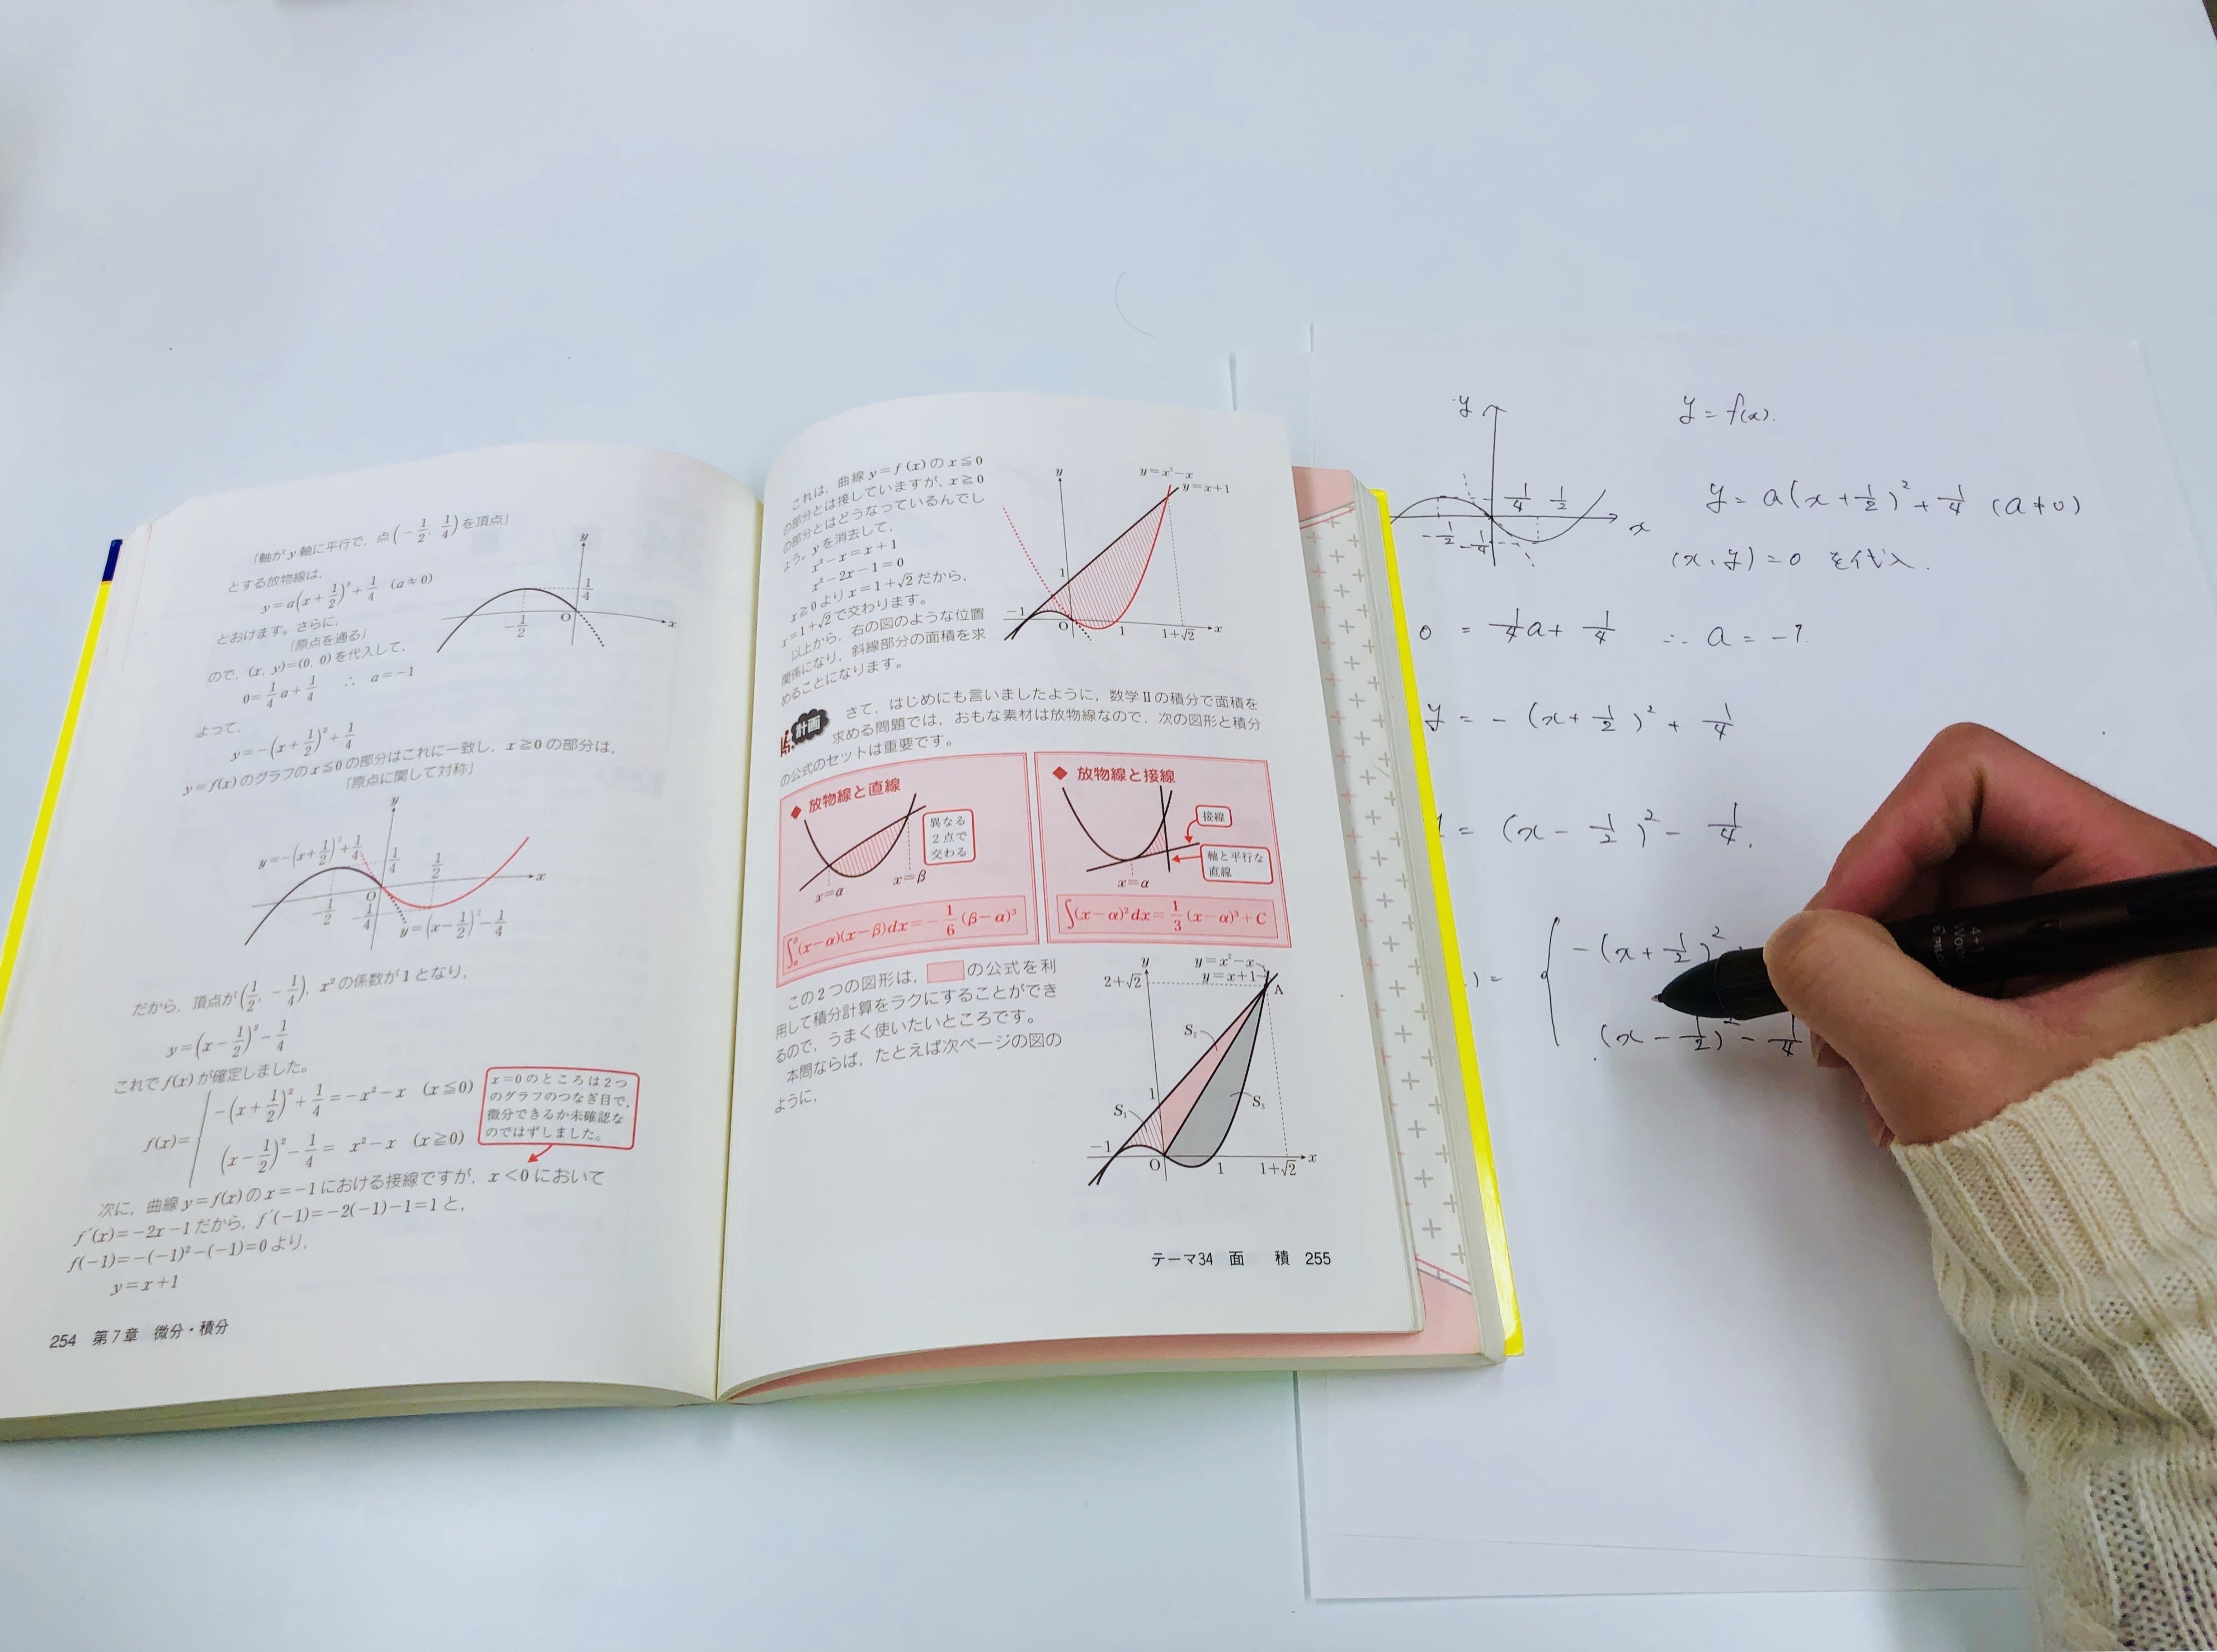 「軸がy軸に平行で，点(−1/2, 1/4)を頂点」
とする放物線は，
y=a(x+1/2)²+1/4 (a≠0)
とおけます。さらに，
「原点を通る」
ので，(x, y)=(0, 0)を代入して，
0=1/4a+1/4 ∴ a=−1
よって，
y=−(x+1/2)²+1/4
y=f(x)のグラフのx≦0の部分はこれに一致し，x≧0の部分は，
「原点に関して対称」
y
1/4
−1/2
O
x
y
y=−(x+1/2)²+1/4
1/4
1/2
x
O
−1/2
−1/4
y=(x−1/2)²−1/4
だから，頂点が(1/2, −1/4)，x²の係数が1となり，
y=(x−1/2)²−1/4
これでf(x)が確定しました。
f(x)={−(x+1/2)²+1/4=−x²−x (x≦0)
(x−1/2)²−1/4= x²−x (x≧0)
x=0のところは2つ
のグラフのつなぎ目で，
微分できるか未確認な
のではずしました。
次に，曲線y=f(x)のx=−1における接線ですが，x<0において
f′(x)=−2x−1だから，f′(−1)=−2(−1)−1=1と，
f(−1)=−(−1)²−(−1)=0より，
y=x+1
254 第7章 微分・積分
これは，曲線y=f(x)のx≦0
の部分とは接していますが，x≧0
の部分とはどうなっているんでし
ょう。yを消去して，
x²−x=x+1
x²−2x−1=0
x≧0よりx=1+√2だから，
x=1+√2で交わります。
以上から，右の図のような位置
関係になり，斜線部分の面積を求
めることになります。
y
y=x²−x
y=x+1
1
−1
O
1
1+√2
x
計画
さて，はじめにも言いましたように，数学Ⅱの積分で面積を
求める問題では，おもな素材は放物線なので，次の図形と積分
の公式のセットは重要です。
◆ 放物線と直線
異なる
2点で
交わる
x=α
x=β
∫_α^β(x−α)(x−β)dx=−1/6(β−α)³
◆ 放物線と接線
接線
軸と平行な
直線
x=α
∫(x−α)²dx=1/3(x−α)³+C
この2つの図形は，　の公式を利
用して積分計算をラクにすることができ
るので，うまく使いたいところです。
本問ならば，たとえば次ページの図の
ように，
y
y=x²−x
y=x+1
2+√2
A
S₂
1
S₁
S₃
−1
O
1
1+√2
x
テーマ34 面 積 255
y
1/4 1/2
x
−1/2 −1/4
y=f(x).
y=a(x+1/2)²+1/4 (a≠0)
(x,y)=0 を代入.
0 = 1/4a+1/4 ∴ a=−1.
y=−(x+1/2)²+1/4
= (x−1/2)²−1/4.
)= {−(x+1/2)²
(x−1/2)²−1/4
4+1